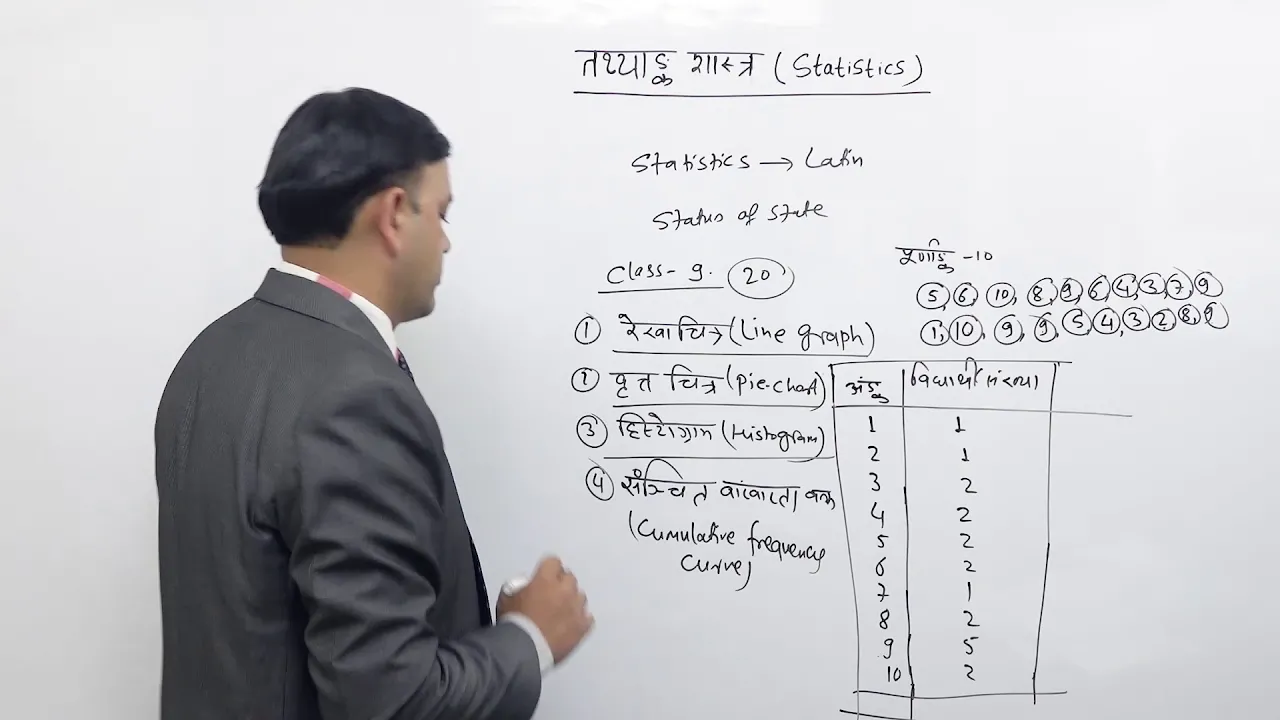 तथ्याङ्क शास्त्र (Statistics)
Statistics → Latin
Status of State
Class- 9. 20
① रेखाचित्र (Line graph)
② वृत्त चित्र (Pie-chart)
③ हिस्टोग्राम (Histogram)
④ सञ्चित वारंवारता वक्र
(Cumulative frequency
Curve)
पूर्णाङ्क -10
5, 6, 10, 8, 9, 6, 4, 3, 7, 9
1, 10, 9, 9, 5, 4, 3, 2, 8, 9
अंङ्क विद्यार्थी संख्या
1 1
2 1
3 2
4 2
5 2
6 2
7 1
8 2
9 5
10 2